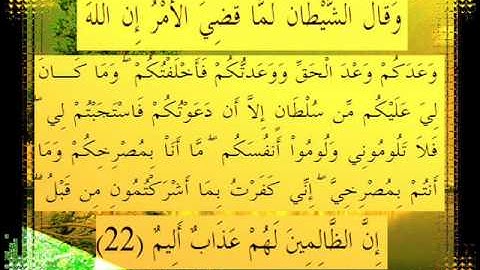 وَقَالَ الشَّيْطَانُ لَمَّا قُضِيَ الأَمْرُ إِنَّ اللّهَ
وَعَدَكُمْ وَعْدَ الْحَقِّ وَوَعَدتُّكُمْ فَأَخْلَفْتُكُمْ ۖ وَمَا كَانَ
لِيَ عَلَيْكُم مِّن سُلْطَانٍ إِلاَّ أَن دَعَوْتُكُمْ فَاسْتَجَبْتُمْ لِي ۖ
فَلاَ تَلُومُونِي وَلُومُواْ أَنفُسَكُم ۖ مَّا أَنَاْ بِمُصْرِخِكُمْ وَمَا
أَنتُمْ بِمُصْرِخِيَّ ۖ إِنِّي كَفَرْتُ بِمَا أَشْرَكْتُمُونِ مِن قَبْلُ ۗ
إِنَّ الظَّالِمِينَ لَهُمْ عَذَابٌ أَلِيمٌ (22)